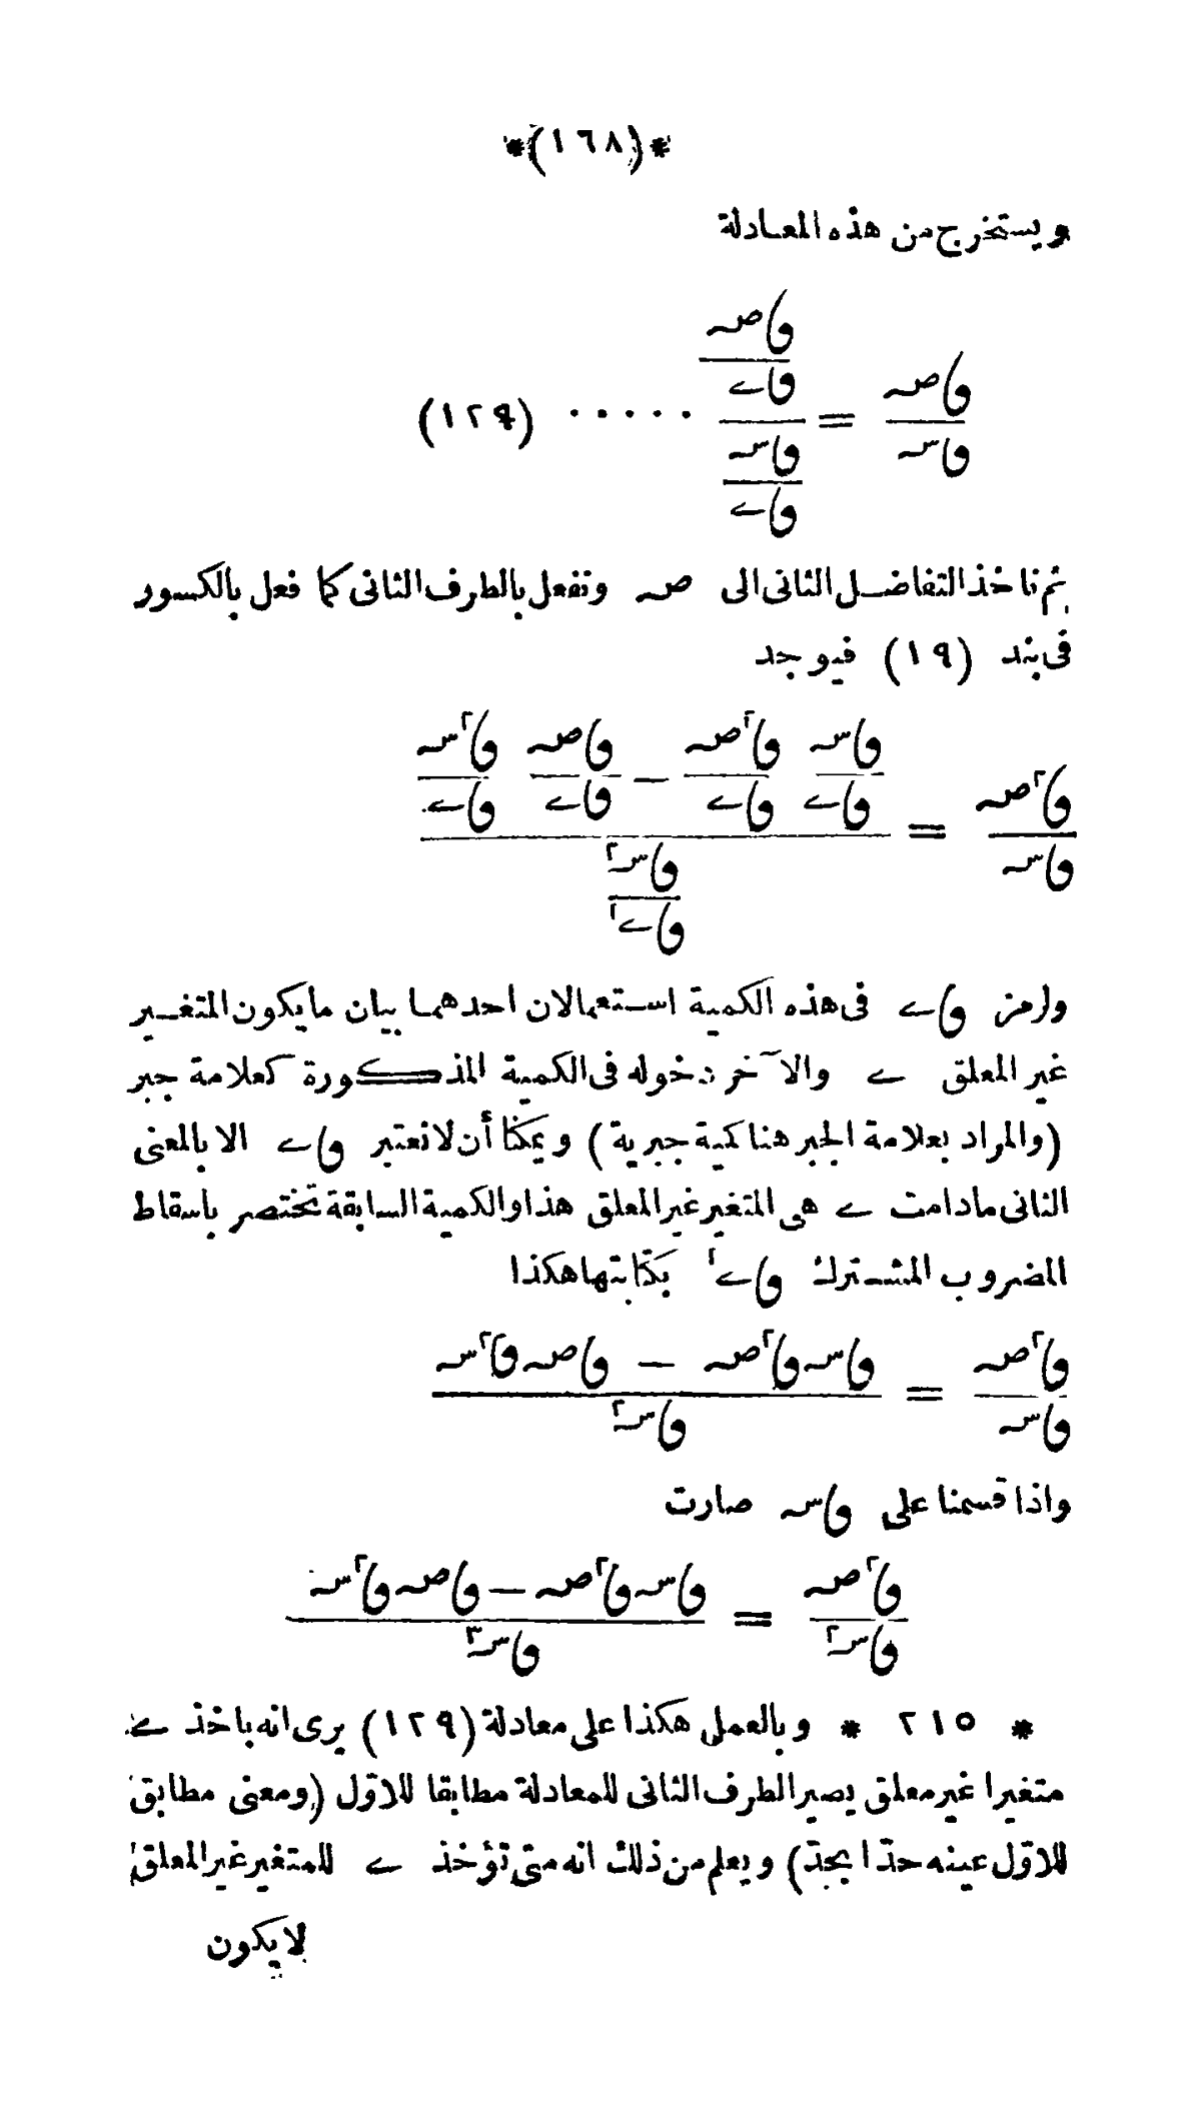 *(١٦٨)*
ويستخرج من هذه المعادلة
وا صہ / وا سہ = (وا صہ / وا ے) / (وا سہ / وا ے) ..... (١٢٩)
ثم ناخذ التفاضل الثانى الى صہ ونفعل بالطرف الثانى كما فعل بالكسور
فى بند (١٩) فيوجد
وا٢ صہ / وا سہ = (وا سہ / وا ے وا٢ صہ / وا ے − وا صہ / وا ے وا٢ سہ / وا ے) / (وا سہ٢ / وا ے٢)
ولرمز وا ے فى هذه الكمية استعمالان احدهما بيان ما يكون المتغير
غير المعلق ے والآخر دخوله فى الكمية المذكورة كعلامة جبر
(والمراد بعلامة الجبر هنا كمية جبرية) ويمكننا أن لا نعتبر وا ے الا بالمعنى
الثانى مادامت ے هى المتغير غير المعلق هذا والكمية السابقة تختصر باسقاط
المضروب المشترك وا ے٢ بكتابتها هكذا
وا٢ صہ / وا سہ = (وا سہ وا٢ صہ − وا صہ وا٢ سہ) / وا سہ٢
واذا قسمنا على وا سہ صارت
وا٢ صہ / وا سہ٢ = (وا سہ وا٢ صہ − وا صہ وا٢ سہ) / وا سہ٣
* ٢١٥ * وبالعمل هكذا على معادلة (١٢٩) يرى انه باخذ ے
متغيرا غير معلق يصير الطرف الثانى للمعادلة مطابقا للاوّل (ومعنى مطابق
للاوّل عينه حدّا بحدّ) ويعلم من ذلك انه متى تؤخذ ے للمتغير غير المعلق
لا يكون